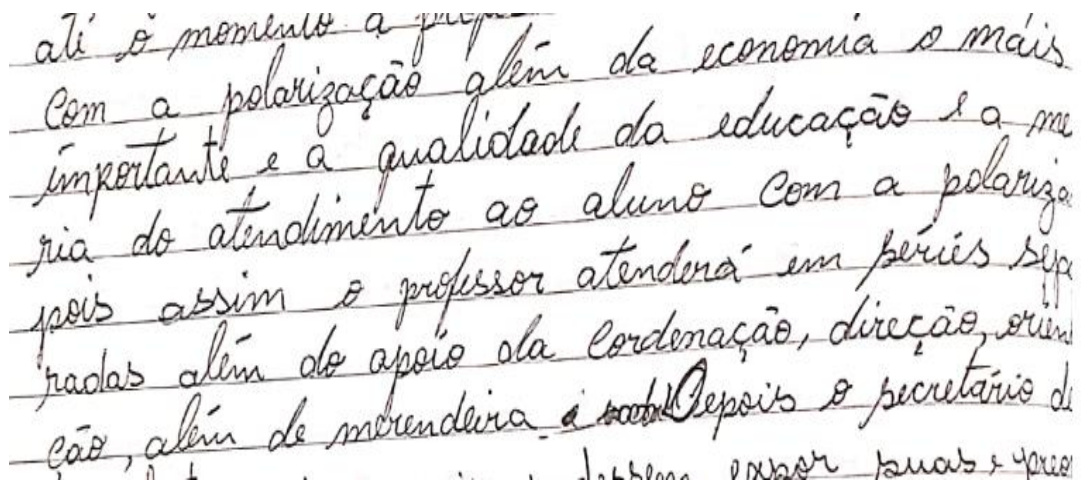 até o momento a
Com a polarização além da economia o mais
importante e a qualidade da educação e a me
ria do atendimento ao aluno Com a polariza
pois assim o professor atenderá em séries sepa
radas além do apoio da Cordenação, direção, orien
ção, além de merendeira Depois o secretário de
suas